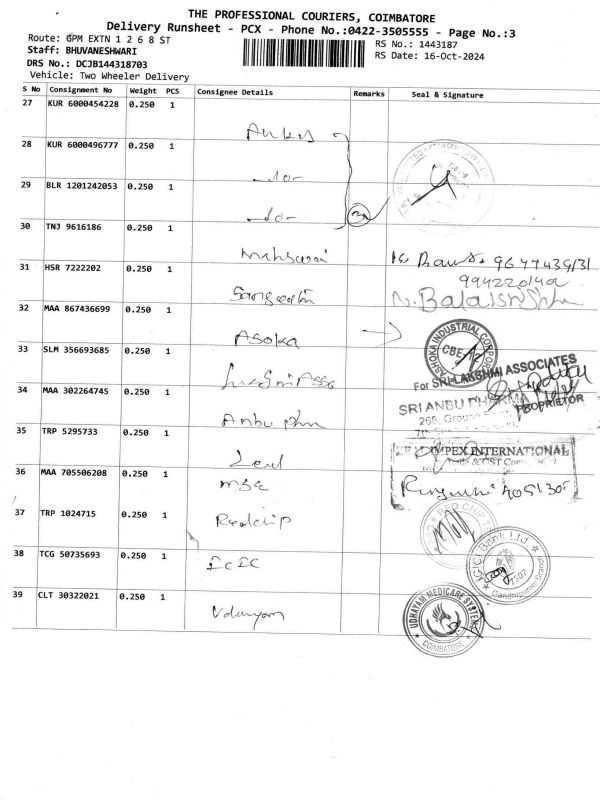 THE PROFESSIONAL COURIERS, COIMBATORE
Delivery Runsheet - PCX - Phone No.:0422-3505555 - Page No.:3
Route: GPM EXTN 1 2 6 8 ST
RS No.: 1443187
Staff: BHUVANESHWARI
RS Date: 16-Oct-2024
DRS No.: DCJB144318703
Vehicle: Two Wheeler Delivery
S No Consignment No Weight PCS Consignee Details Remarks Seal & Signature
27 KUR 6000454228 0.250 1
28 KUR 6000496777 0.250 1
29 BLR 1201242053 0.250 1
30 TNJ 9616186 0.250 1
31 HSR 7222202 0.250 1 Sangeeth
32 MAA 867436699 0.250 1 Asoka
ASHOKA INDUSTRIAL CORPOR
CBE
33 SLM 356693685 0.250 1
For SRI LAKSHMI ASSOCIATES
PROPRIETOR
34 MAA 302264745 0.250 1 Anbu phm
SRI ANBU PHARMA
35 TRP 5295733 0.250 1
IMPEX INTERNATIONAL
36 MAA 705506208 0.250 1
37 TRP 1024715 0.250 1 Redchip
RED CHIP
38 TCG 50735693 0.250 1 ICIC
ICICI Bank Ltd
Gandhipuram Branch
39 CLT 30322021 0.250 1 Udayam
UDHAYAM MEDICARE SYSTEMS
COIMBATORE